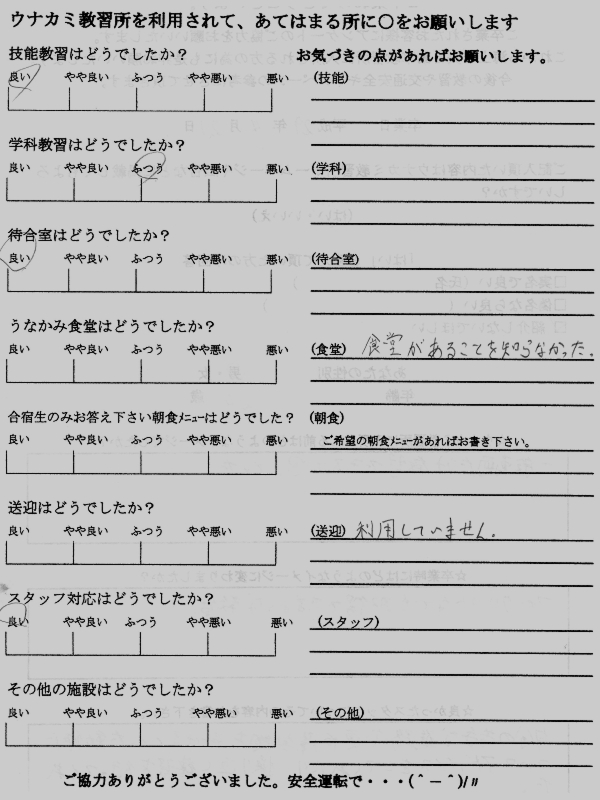 ウナカミ教習所を利用されて、あてはまる所に〇をお願いします
技能教習はどうでしたか？ お気づきの点があればお願いします。
良い やや良い ふつう やや悪い 悪い (技能)
学科教習はどうでしたか？
良い やや良い ふつう やや悪い 悪い (学科)
待合室はどうでしたか？
良い やや良い ふつう やや悪い 悪い (待合室)
うなかみ食堂はどうでしたか？
良い やや良い ふつう やや悪い 悪い (食堂) 食堂があることを知らなかった。
合宿生のみお答え下さい朝食ﾒﾆｭｰはどうでした？ (朝食)
良い やや良い ふつう やや悪い 悪い ご希望の朝食ﾒﾆｭｰがあればお書き下さい。
送迎はどうでしたか？
良い やや良い ふつう やや悪い 悪い (送迎) 利用していません。
スタッフ対応はどうでしたか？
良い やや良い ふつう やや悪い 悪い (スタッフ)
その他の施設はどうでしたか？
良い やや良い ふつう やや悪い 悪い (その他)
ご協力ありがとうございました。安全運転で・・・(＾－＾)/〃